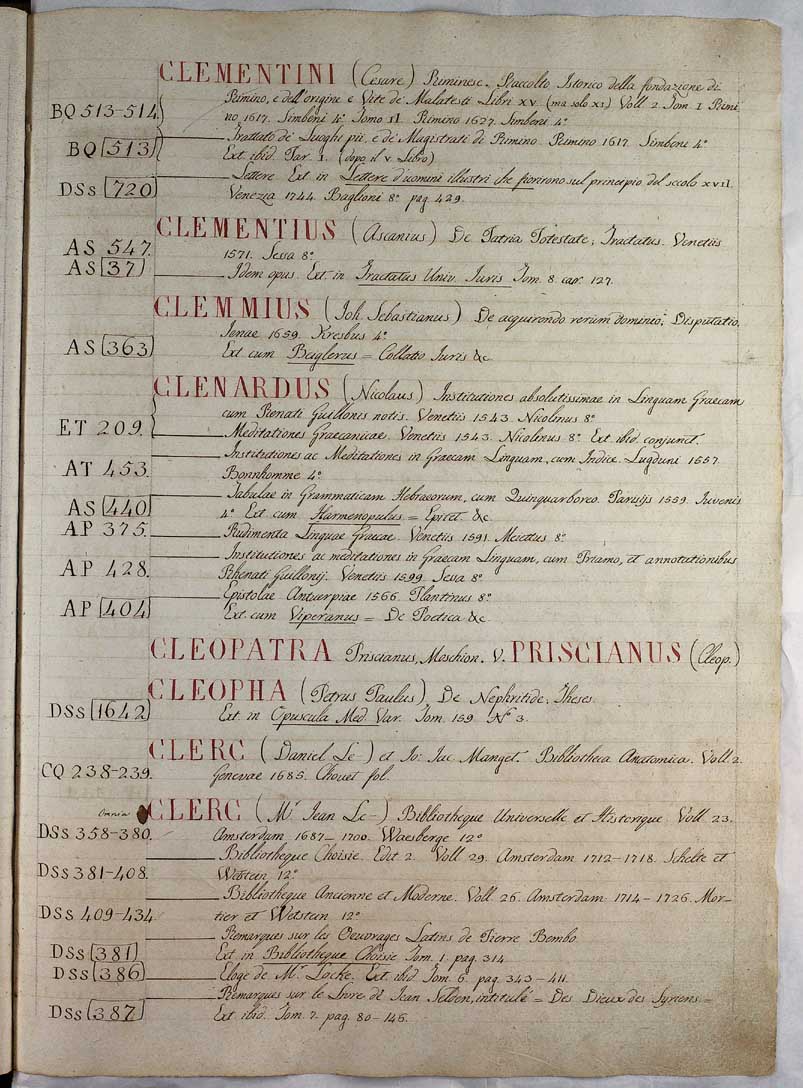 CLEMENTINI (Cesare) Riminese. Raccolto Istorico della fondazione di
Rimino, e dell'origine e Vite de' Malatesti Libri XV. (ma solo XI) Voll. 2. Tom. I. Rimi-
BQ 513-514. no 1617. Simbeni 4.° Tomo II. Rimino 1627. Simbeni 4.°
——— Trattato de' Luoghi pii, e de' Magistrati di Rimino. Rimino 1617. Simbeni 4.°
BQ 513 Ext. ibid. Par. I. (dopo il V. Libro)
——— Lettere. Ext. in Lettere d'uomini illustri che fiorirono sul principio del secolo XVII.
DSs 720 Venezia 1744. Baglione 8.° pag. 429.
CLEMENTIUS (Ascanius) De Patria Potestate, Tractatus. Venetiis
AS 547. 1571. Sessa 8.°
AS 37 ——— Idem opus. Ext. in Tractatus Univ. Iuris Tom. 8. car. 127.
CLEMMIUS (Joh. Sebastianus) De acquirendo rerum dominio, Disputatio.
Ienae 1659. Kresbus 4.°
AS 363 Ext. cum Buglerus = Collatio Iuris &c.
CLENARDUS (Nicolaus) Institutiones absolutissimae in Linguam Graecam
cum Renati Guillonis notis. Venetiis 1543. Nicolinus 8.°
ET 209. ——— Meditationes Graecanicae. Venetiis 1543. Nicolinus 8.° Ext. ibid. conjunct.
——— Institutiones ac Meditationes in Graecam Linguam, cum Indice. Lugduni 1557.
AT 453. Bonnhomme 4.°
——— Tabulae in Grammaticam Hebraeorum, cum Quinquarboreo. Parisijs 1559. Iuvenis
AS 440 4.° Ext. cum Harmenopulus = Epitet. &c.
AP 375. ——— Rudimenta Linguae Graecae. Venetiis 1591. Mescatus 8.°
——— Institutiones ac meditationes in Graecam Linguam, cum Priamo, et annotationibus
AP 428. Rhenati Guillonij. Venetiis 1599. Sessa 8.°
——— Epistolae. Antuerpiae 1566. Plantinus 8.°
AP 404 Ext. cum Viperanus = De Poetica &c.
CLEOPATRA Priscianus, Moschion. V. PRISCIANUS (Cleop.)
CLEOPHA (Petrus Paulus) De Nephritide, Theses.
DSs 1642 Ext. in Opuscula Med. Var. Tom. 159. N.° 3.
CLERC (Daniel Le-) et Io: Iac. Manget. Bibliotheca Anatomica. Voll. 2.
CQ 238-239. Genevae 1685. Chouet fol.
Omnia CLERC (M.r Jean Le-) Bibliotheque Universelle et Historique. Voll. 23.
DSs 358-380. Amsterdam 1687-1700. Waesberge 12.°
——— Bibliotheque Choisie. Edit. 2. Voll. 29. Amsterdam 1712-1718. Schelte et
DSs 381-408. Wetstein 12.°
——— Bibliotheque Ancienne et Moderne. Voll. 26. Amsterdam 1714-1726. Mor-
DSs 409-434. tier et Wetstein 12.°
——— Remarques sur les Oeuvrages Latins de Pierre Bembo.
DSs 381 Ext. in Bibliotheque Choisie Tom. 1. pag. 314.
DSs 386 ——— Eloge de M.r Locke. Ext. ibid. Tom. 6. pag. 343-411.
——— Remarques sur le Livre de Jean Selden, intitulé = Des Dieux des Syriens =
DSs 387 Ext. ibid. Tom. 7. pag. 80-146.